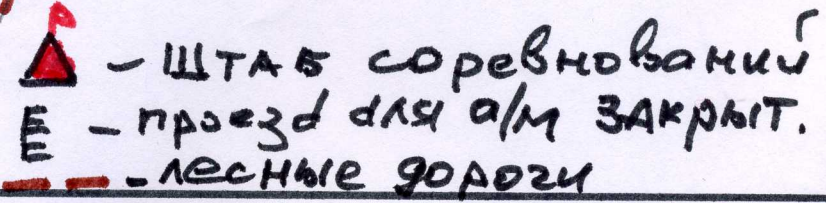 - ШТАБ соревнований
- проезд для а/м ЗАКРЫТ.
- лесные дороги